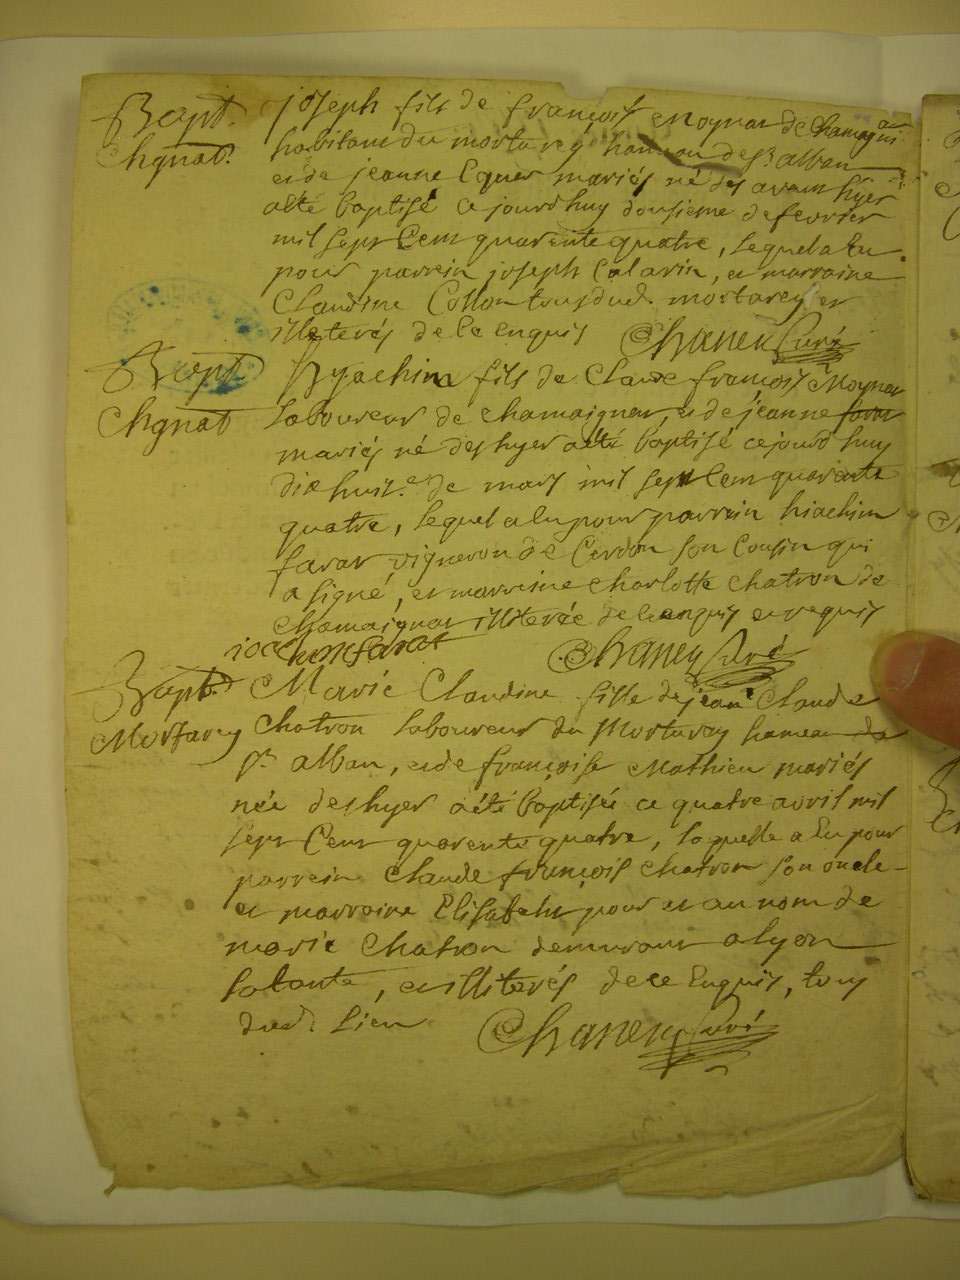 Bapt.
Chgnat.
joseph fils de françois moynar de Champagnia
habitant du mortarey hameau de st. alban
et de jeanne mariés né des avant hyer
a été baptisé ce jourdhuy dousieme de fevrier
mil sept Cent quarente quatre, lequel a Eu
pour parrein joseph Calarin, et marraine
Claudine Collon tous dud. mortarey et
illiterés de ce enquis Chaney Curé
Bapt.
Chgnat
hyachim fils de Claude françois Moynar
laboureur de chamaignar, et de jeanne favar
mariés né des hyer a été baptisé ce jourd'huy
dix huit.e de mars mil sept Cent quarente
quatre, lequel a Eu pour parrein hiachim
favar vigneron de Cerdon son Cousin qui
a signé, et marreine charlotte chatron de
chamaignar illiterée de ce enquis et requis
favat Chaney Curé
Bapt.
Mortarey
Marie Claudine fille de jean Claude
chatron laboureur du Mortarey hameau de
st. alban, et de françoise Mathieu mariés
née des hyer a été baptisée ce quatre avril mil
sept Cent quarente quatre, laquelle a Eu pour
parrein Claude françois chatron son oncle
et marraine Elisabeht pour et au nom de
marie chatron demeurant a lyon
sa tante, et illiterés de ce Enquis, tous
dud. Lieu Chaney Curé